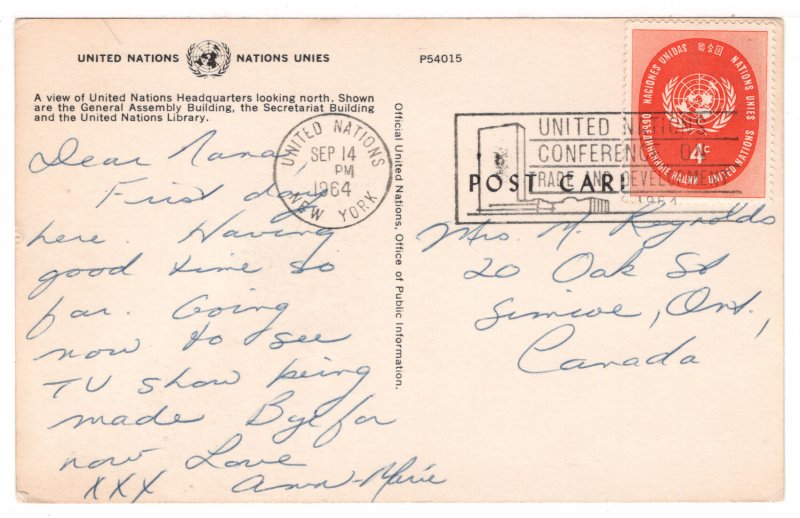 UNITED NATIONS NATIONS UNIES
P54015
A view of United Nations Headquarters looking north. Shown
are the General Assembly Building, the Secretariat Building
and the United Nations Library.
Dear Nana,
First day
here. Having
good time so
far. Going
now to see
TV show being
made Bye for
now Love
XXX Ann-Marie
Official United Nations, Office of Public Information.
UNITED NATIONS
SEP 14
PM
1964
NEW YORK
UNITED NATIONS
CONFERENCE ON
TRADE AND DEVELOPMENT
1964
NACIONES UNIDAS 聯合國 NATIONS UNIES
ОБЪЕДИНЕННЫЕ НАЦИИ UNITED NATIONS
4c
POST CARD
Mrs M. Reynolds
20 Oak St
Simcoe, Ont,
Canada